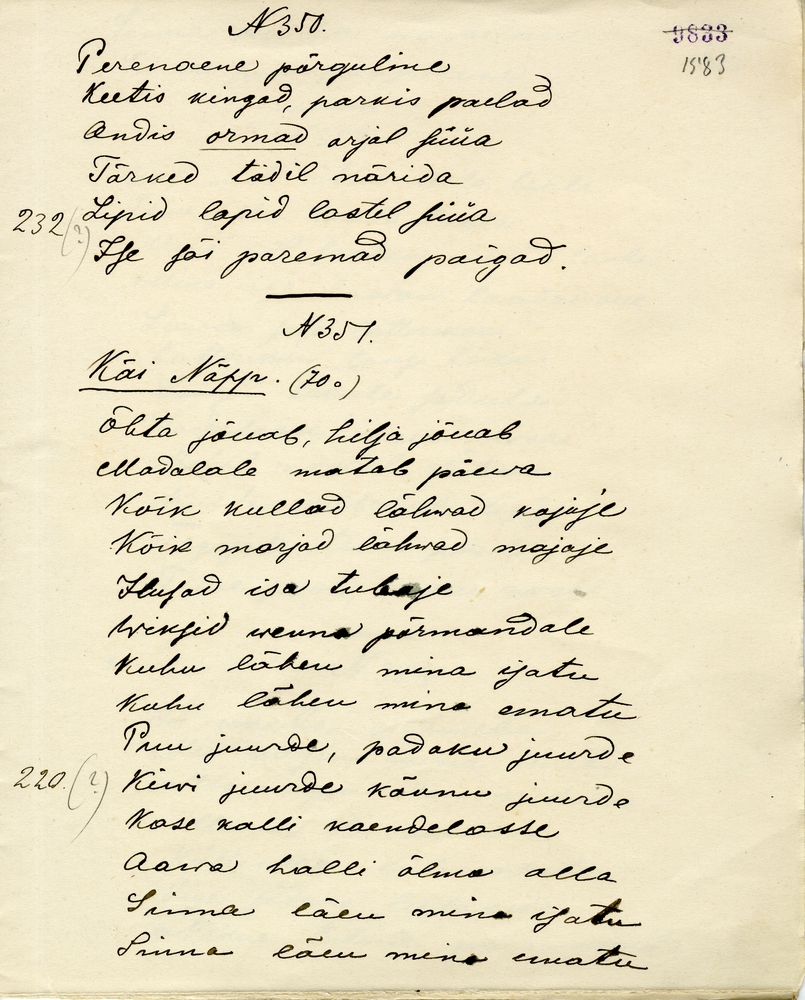 N 350.
9833
1583
Perenaene põrguline
Keetis kingad, parkis paelad
Andis ormad orjal süüa
Tärked tädil närida
232 (?) Lipid lapid lastel süüa
Ise söi paremad paigad.
N 351.
Käi Näpp. (70a)
Õhta jõuab, hilja jõuab
Madalale matab päewa
Kõik kullad lähwad kojaje
Kõik marjad lähwad majaje
Ilusad isa tubaje
Wiksid wenna põrmandale
Kuhu lähen mina isatu
Kuhu lähen mina ematu
Puu juurde, padaku juurde
220. (?) Kiwi juurde kännu juurde
Kase kalli kaendelasse
Aawa halli õlma alla
Sinna läen mina isatu
Sinna läen mina ematu